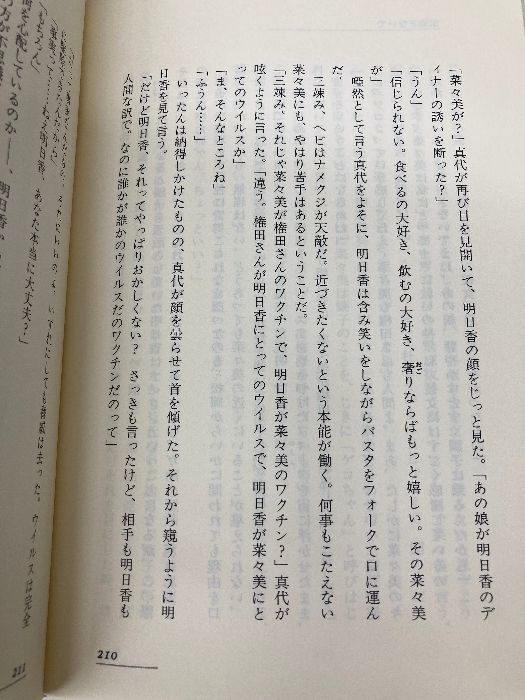 「菜々美が？」真代が再び目を見開いて、明日香の顔をじっと見た。「あの娘が明日香のデ
ィナーの誘いを断った？」
「うん」
「信じられない。食べるの大好き、飲むの大好き、奢りならばもっと嬉しい。その菜々美
おご
が」
啞然として言う真代をよそに、明日香は含み笑いをしながらパスタをフォークで口に運ん
だ。
「三竦み、ヘビはナメクジが天敵だ。近づきたくないという本能が働く。何事もこたえない
菜々美にも、やはり苦手はあるということだ。
「三竦み、それじゃ菜々美が権田さんのワクチンで、明日香が菜々美のワクチン？」真代が
呟くように言った。「違う。権田さんが明日香にとってのウイルスで、明日香が菜々美にと
ってのウイルスか」
「ま、そんなところね」
「ふうん……」
いったんは納得しかけたものの、真代が顔を曇らせて首を傾げた。それから窺うように明
日香を見て言う。
「だけど明日香、それってやっぱりおかしくない？　さっきも言ったけど、相手も明日香も
人間な訳で。なのに誰かが誰かのウイルスだのワクチンだのって」
210
いずれにしても
は去った。ウイルスは完全
「もちろん」
あなた本当に大丈夫？」
を心配しているのか――、明日香
211